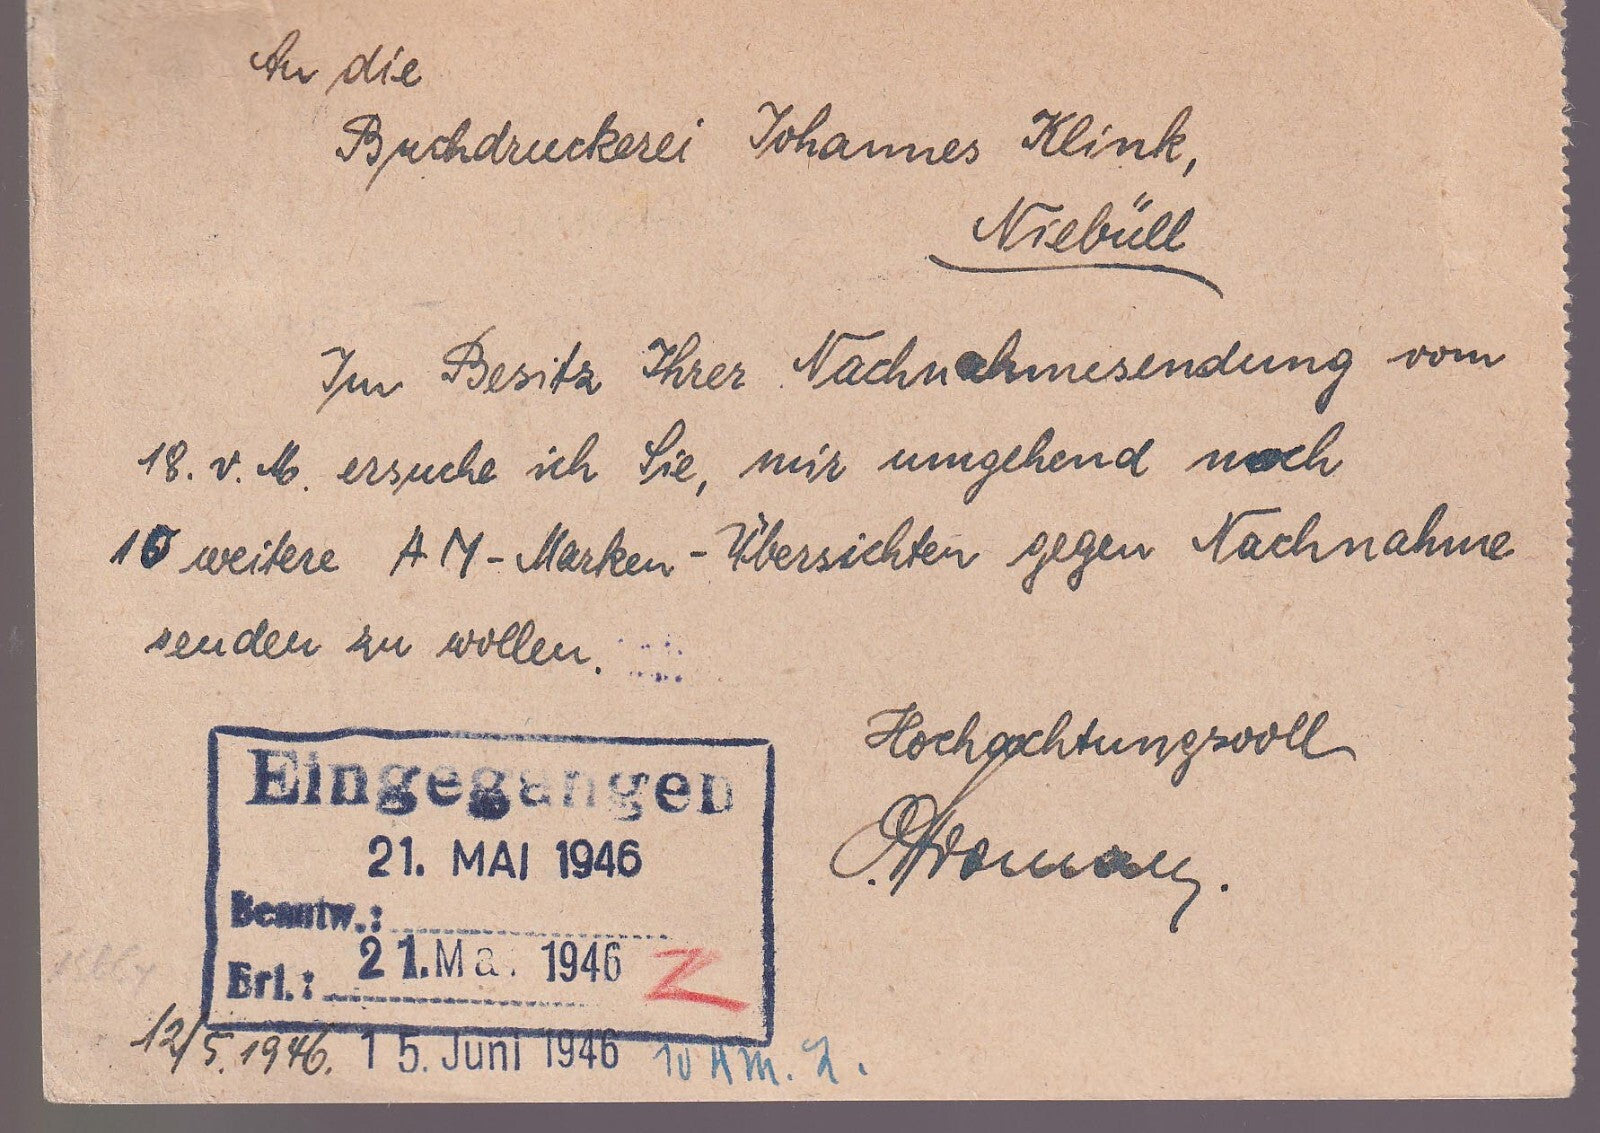 An die
Buchdruckerei Johannes Klink,
Niebüll
Im Besitz Ihrer Nachnahmesendung vom
18. v. M. ersuche ich Sie, mir umgehend noch
10 weitere AM-Marken-Übersichten gegen Nachnahme
senden zu wollen.
Hochachtungsvoll
Eingegangen
21. MAI 1946
Beantw.:
21. Mai 1946
Erl.:
12/5. 1946. 15. Juni 1946 10 AM.